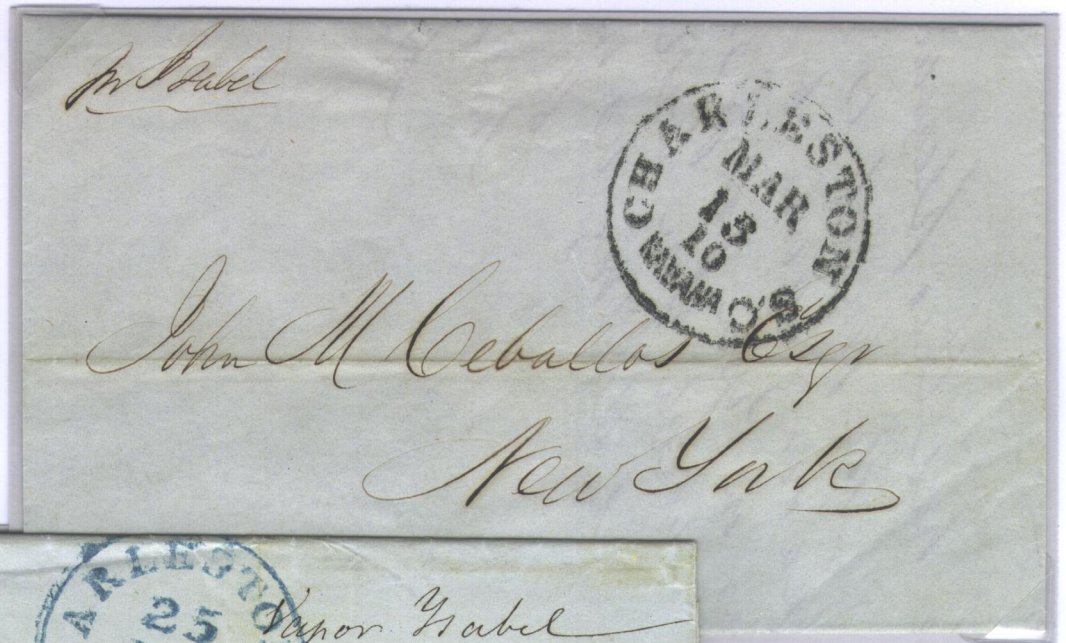 pr Isabel
CHARLESTON
MAR
13
10
HAVANA S.C.
John M Ceballos Esqr
New York
ARLESTO
25
Vapor Isabel